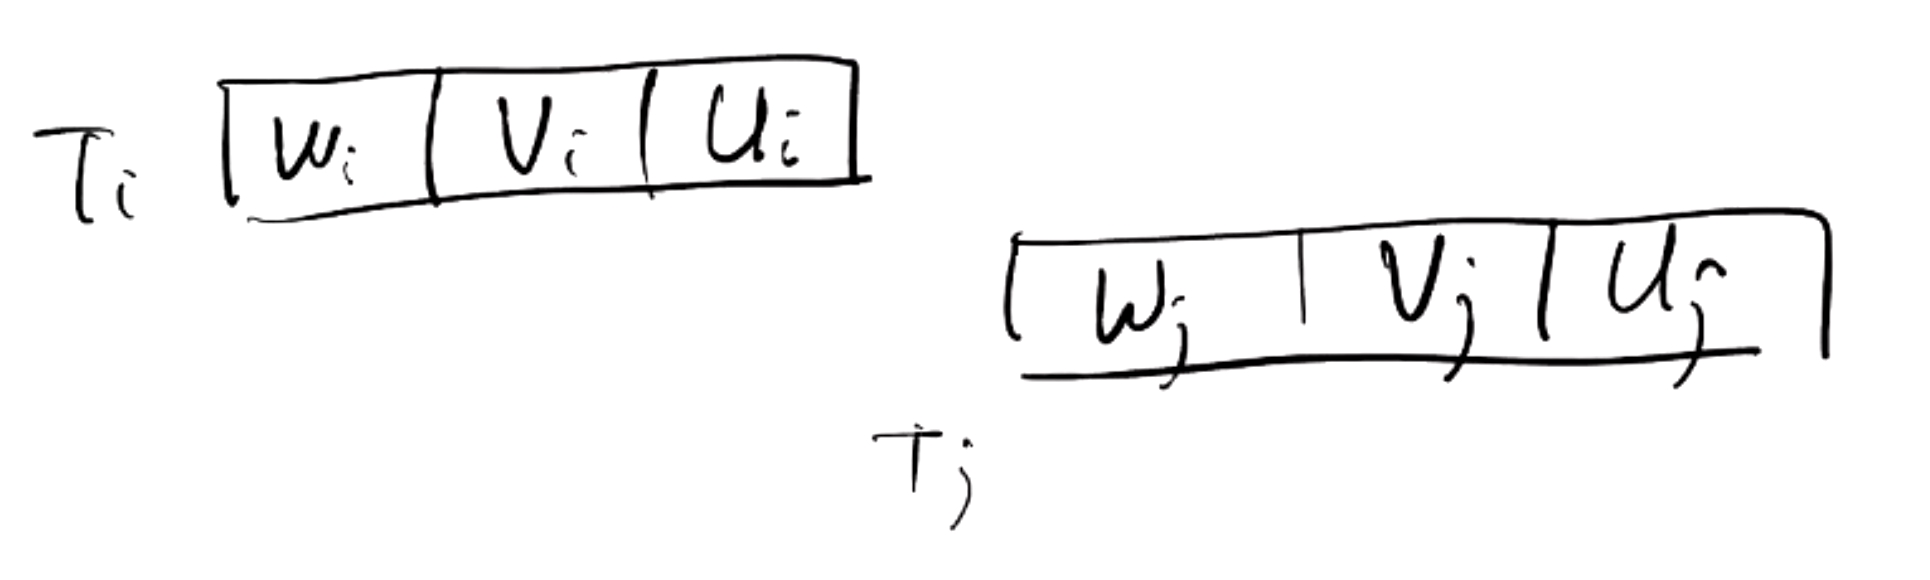 Ti Wi Vi Ui
Wj Vj Uj
Tj